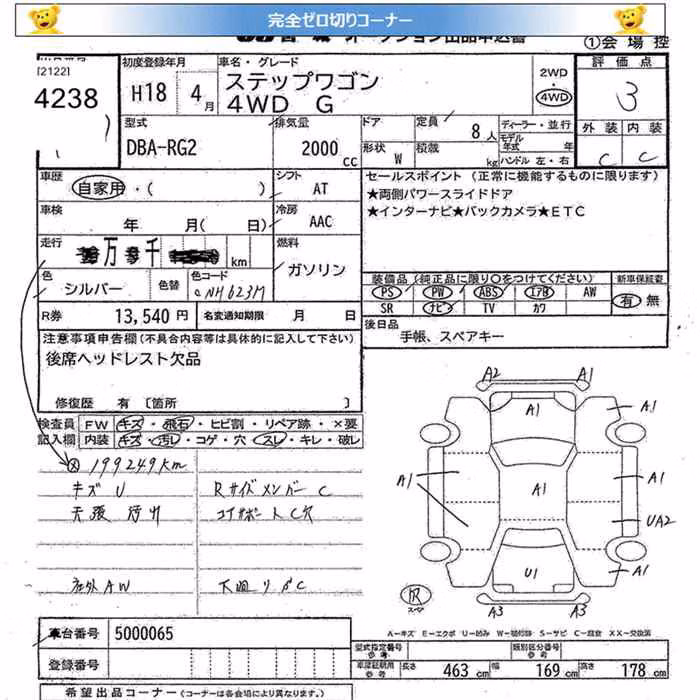 完全ゼロ切りコーナー
オークション出品申込書
①会場控
[2122]
4238
初度登録年月
H18 4月
車名・グレード
ステップワゴン
4WD G
2WD
4WD
評価点
3
外装 内装
C C
型式
DBA-RG2
排気量
2000 cc
ドア
形状 W
定員 8人
積載 kg
ディーラー・並行
モデル年式 年
ハンドル 左・右
車歴
自家用・( )
シフト
AT
車検
年 月( 日)
冷房
AAC
走行
万 千 km
燃料
ガソリン
色
シルバー
色替
色コード
NH623M
R券 13,540円
名変通知期限 月 日
セールスポイント (正常に機能するものに限ります)
★両側パワースライドドア
★インターナビ★バックカメラ★ETC
装備品 (純正品に限り○をつけてください)
PS PW ABS エアB AW
SR ナビ TV カワ
新車保証書
有 無
後日品
手帳、スペアキー
注意事項申告欄 (不具合内容等は具体的に記入して下さい)
後席ヘッドレスト欠品
修復歴 有 〔箇所 〕
検査員記入欄
FW キズ・飛石・ヒビ割・リペア跡・×要
内装 キズ・汚レ・コゲ・穴・スレ・キレ・破レ
199249km
キズ U
RサイドメンバーC
天張 汚れ
コアサポートC穴
社外AW
下廻りサビC
A2 A1
A1 A1
A1 A1 A1
UA2
U1 A1
A3 A3
スペア
A-キズ E-エクボ U-凹み W-補修跡 S-サビ C-腐食 XX-交換済
車台番号 5000065
登録番号
型式指定番号 参考
類別区分番号 参考
車歴証明用 参考
長さ 463 cm 幅 169 cm 高さ 178 cm
希望出品コーナー (コーナーは各会場により異なります。)